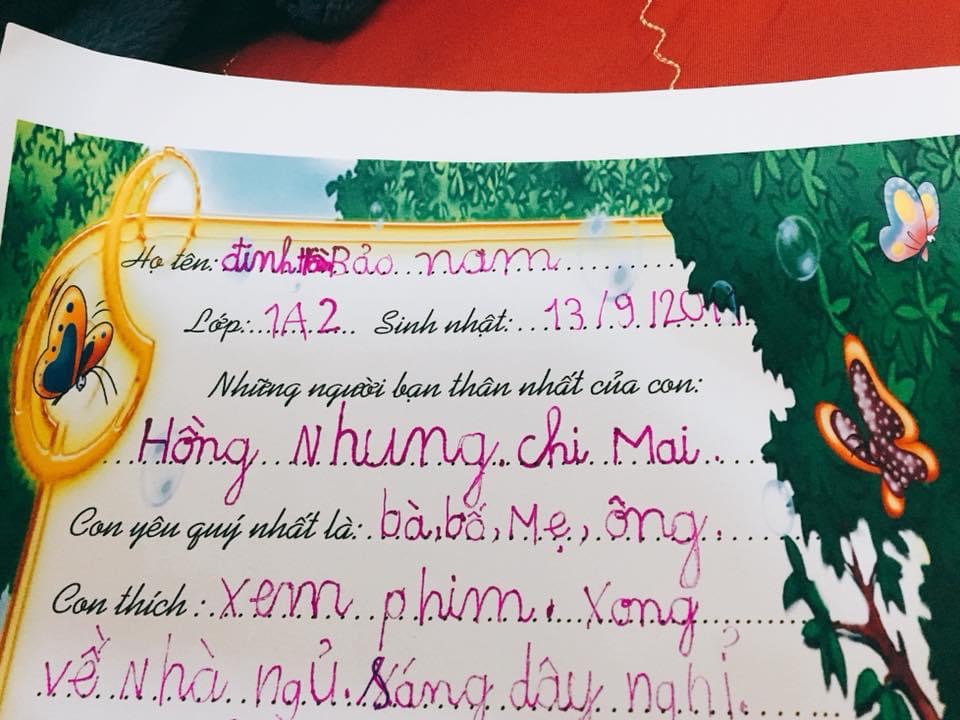 Họ tên: đinh Bảo nam
Lớp: 1A2 Sinh nhật: 13/9/201
Những người bạn thân nhất của con:
Hồng Nhung. chi Mai.
Con yêu quý nhất là: bà, bố, Mẹ, ông.
Con thích: xem phim. Xong
về nhà ngủ. Sáng dây nghỉ.